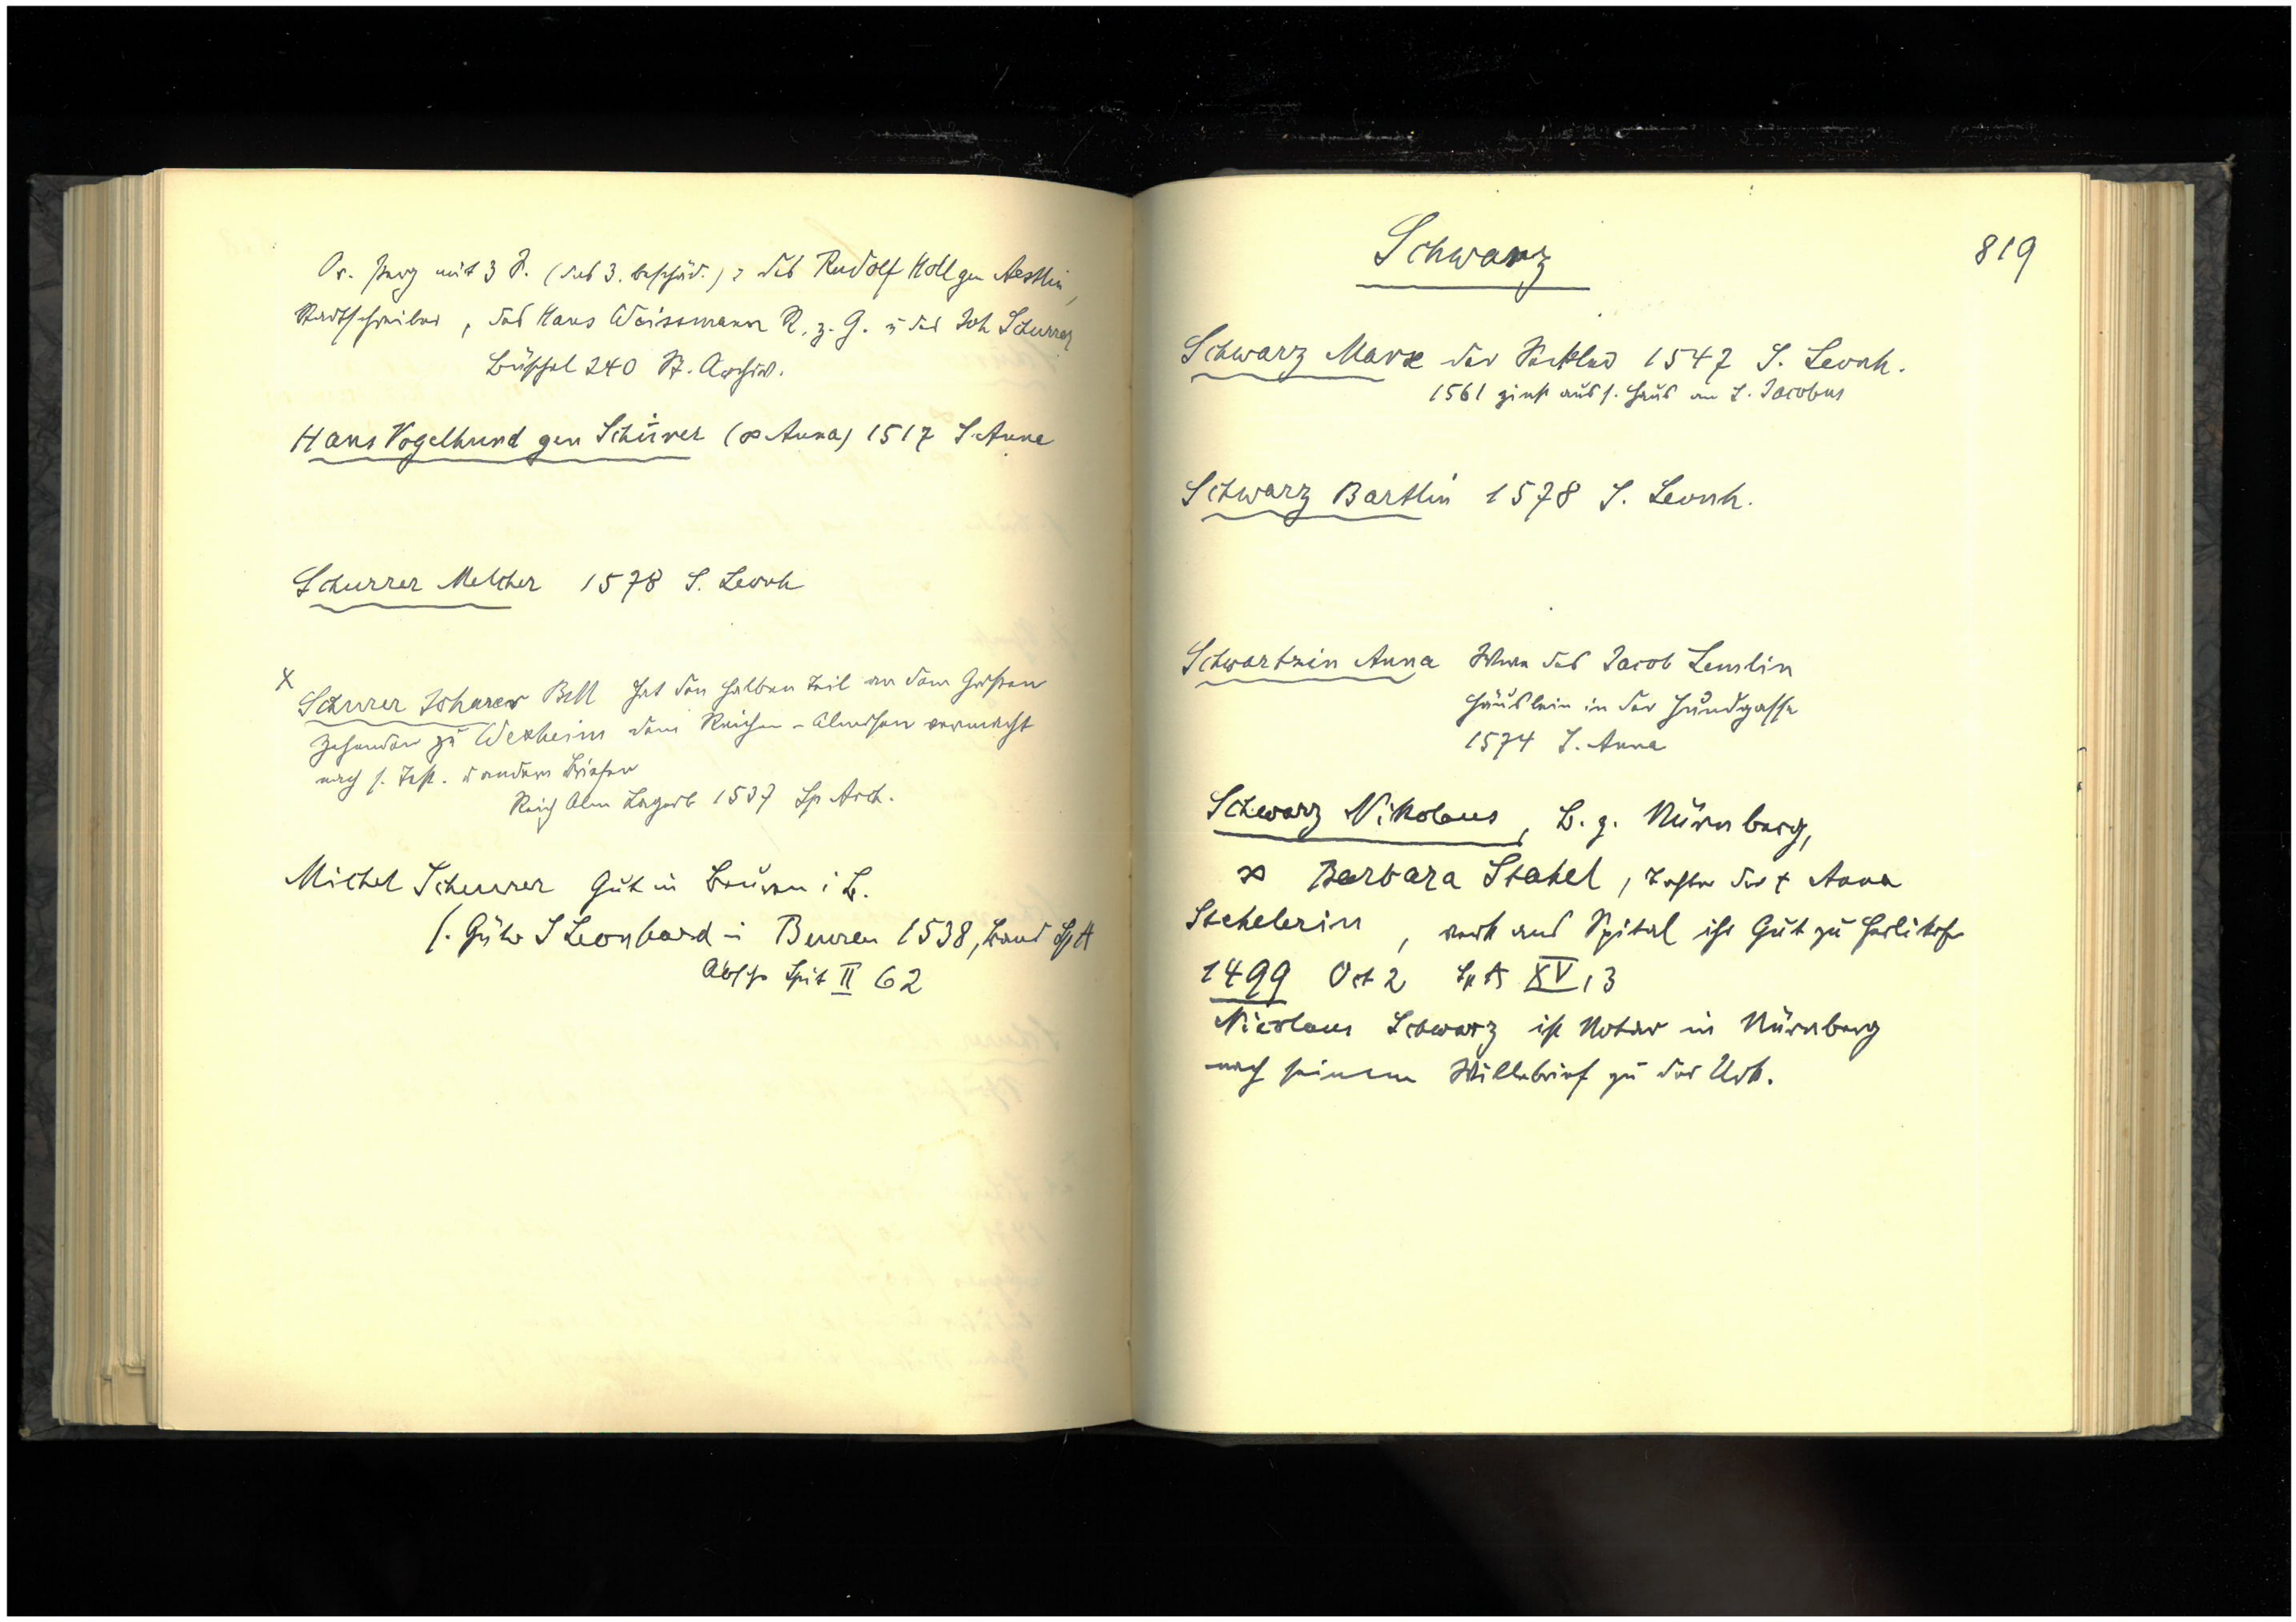 Or. Perg mit 3 S. (das 3. beschäd.) : des Rudolf Holl gen Aestlin,
Stadtschreiber, des Hans Weissmann R. z. G. u des Joh Schurrer
Büschel 240 St. Archiv.
Hans Vogelhund gen Schürer (∞ Anna) 1517 S. Anna
Schurrer Melcher 1578 S. Leonh
x
Schurer Johannes hat den halben Teil an dem Großen
Zehenden zu Wexheim dem Reichen-Almosen vermacht
nach s. Test. u andern Briefen
Reich Alm Lagerb 1537 Sp Arch.
Michel Scheurer Gut in Beuren i B.
s. Güter S Leonhard in Beuren 1538, Band Sp A
Abschr Spit II 62
Schwarz
819
Schwarz Marx der 1547 S. Leonh.
1561 zinst aus s. Haus an S. Jacobus
Schwarz Bartlin 1578 S. Leonh.
Schwartzin Anna Wwe des Jacob Lemlin
Häuslein in der Hundgasse
1574 S. Anna
Schwarz Nikolaus, B. z. Nürnberg,
∞ Barbara Stahel, Tochter der † Anna
Stehelerin, verk ans Spital ihr Gut zu Herlikofen
1499 Oct 2 Sp A XV, 3
Nicolaus Schwarz ist Notar in Nürnberg
nach seinem Willebrief zu der Urk.